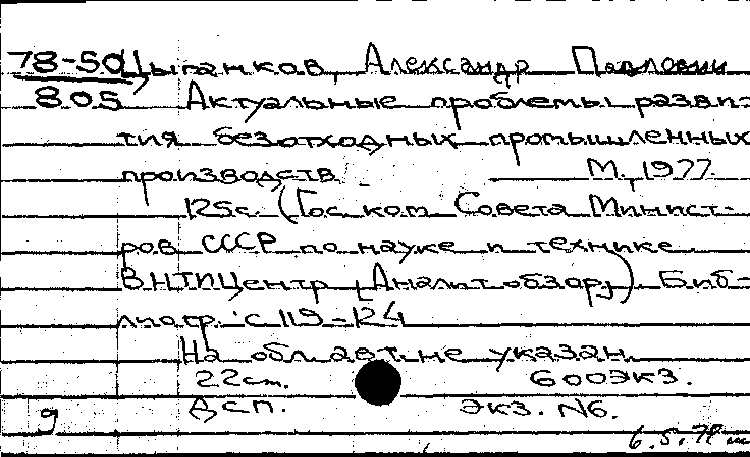 78-50 Цыганков, Александр Павлович
805 Актуальные проблемы разви-
тия безотходных промышленных
производств. М., 1977.
125с. (Гос. ком. Совета Минист-
ров СССР по науке и технике.
ВНТИЦентр. (Аналит. обзор)). Биб-
лиогр.: с. 119-124
На обл. авт. не указан.
22см. 600экз.
9 Дсп. Экз. N6.
6.5.78